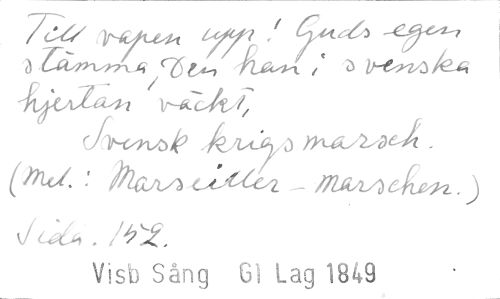 Till vapen upp! Guds egen
stämma, Den han i svenska
hjertan väckt,
Svensk krigsmarsch.
(Mel.: Marseiller-marschen.)
Sida. 152.
Visb Sång Gl Lag 1849